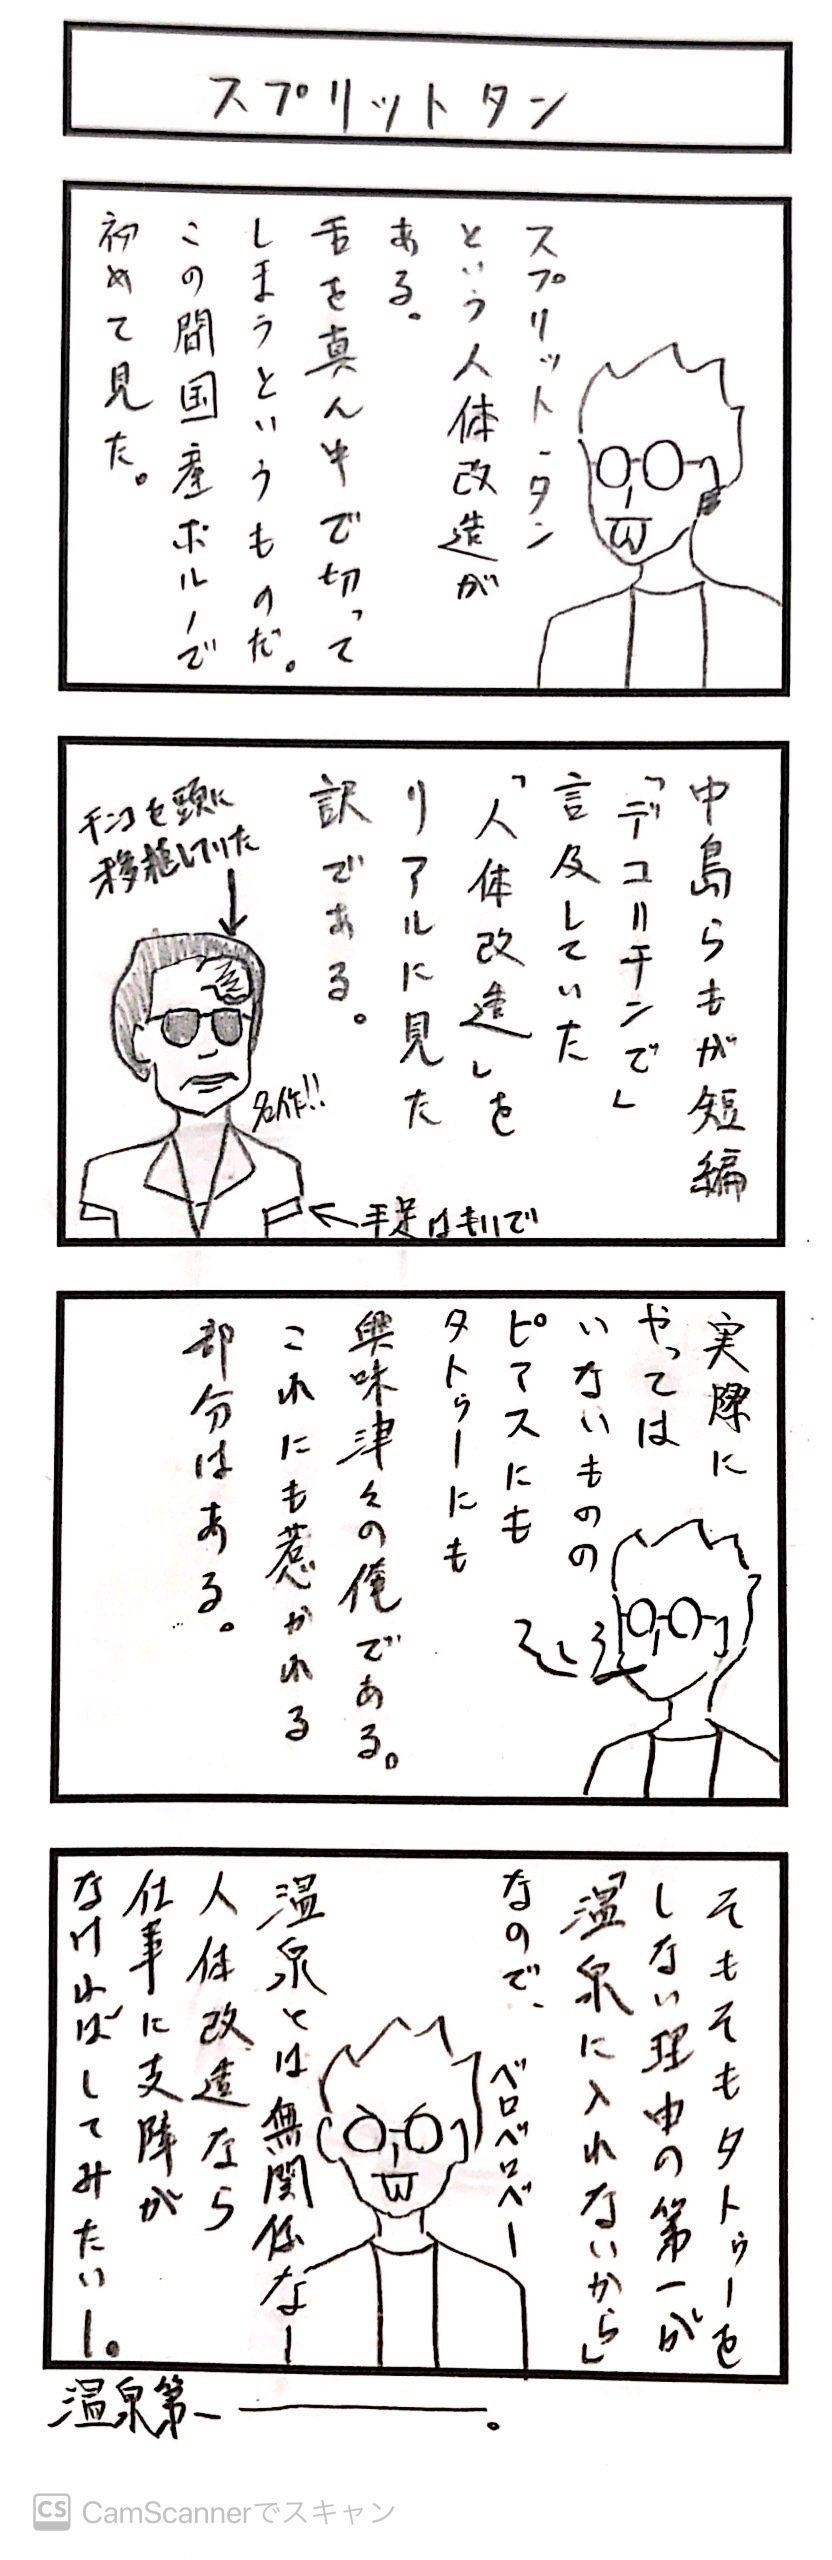 スプリットタン
スプリット・タン
という人体改造が
ある。
舌を真ん中で切って
しまうというものだ。
この間国産ポルノで
初めて見た。
中島らもが短編
「デコリチンで」
言及していた
「人体改造」を
リアルに見た
訳である。
チンコを頭に
移植していた
名作!!
手足はもいで
実際に
やっては
いないものの
ピアスにも
タトゥーにも
興味津々の俺である。
これにも惹かれる
部分はある。
そもそもタトゥーを
しない理由の第一が
「温泉に入れないから」
なので、
ベロベロベー
温泉とは無関係なー
人体改造なら
仕事に支障が
なければしてみたいー。
温泉第一ー。
CS CamScannerでスキャン